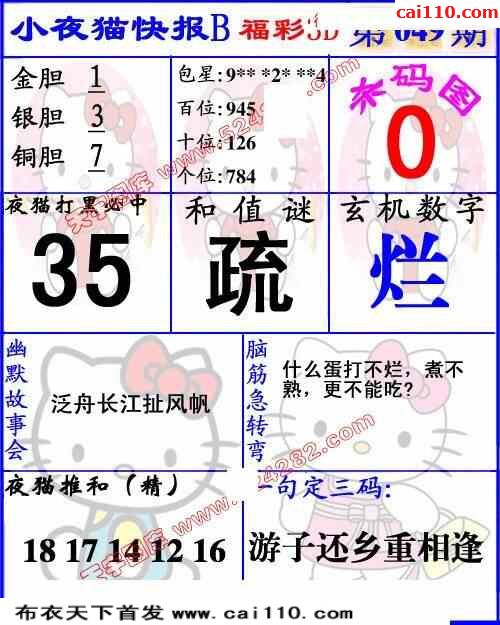 cai110.com
小夜猫快报B 福彩3D 第 049 期
金胆 1
银胆 3
铜胆 7
包星:9** *2* **4
百位:945
十位:126
个位:784
杀码图
0
夜猫打黑必中
35
和值谜
疏
玄机数字
烂
幽默故事会
泛舟长江扯风帆
脑筋急转弯
什么蛋打不烂,煮不
熟,更不能吃?
夜猫推和(精)
18 17 14 12 16
一句定三码:
游子还乡重相逢
布衣天下首发 www.cai110.com